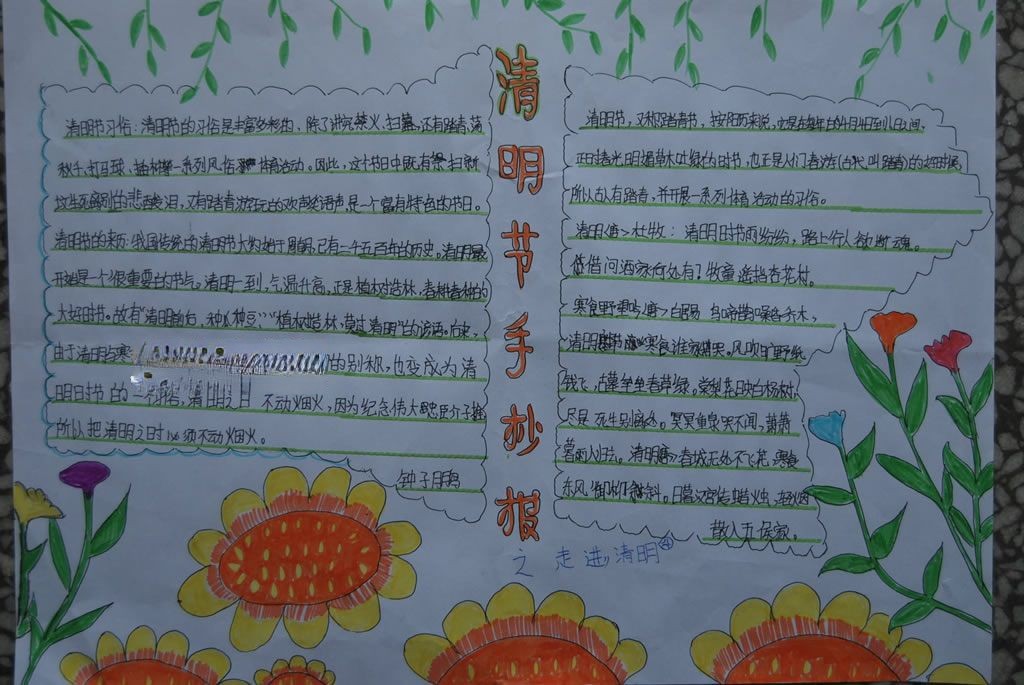 清明节手抄报
之走进清明
清明节习俗：清明节的习俗是丰富多彩的，除了讲究禁火、扫墓，还有踏青、荡
秋千、打马球、插柳等一系列风俗体育活动。因此，这个节日中既有祭扫新
坟生死离别的悲酸泪，又有踏青游玩的欢声笑语声，是一个富有特色的节日。
清明节的来历：我国传统的清明节大约始于周朝，已有二千五百年的历史，清明最
开始是一个很重要的节气，清明一到，气温升高，正是植树造林，春耕春种的
大好时节。故有“清明前后，种瓜种豆”、“植树造林，莫过清明”的谚语。后来，
由于清明与寒 的别称，也变成为清
明时节的一个习俗，清明之日 不动烟火，因为纪念伟大忠臣介子推
所以把清明之时必须不动烟火。
钟子月鸣
清明节，又称踏青节，按阳历来说，它是在每年的4月4日到6日之间，
正是春光明媚草木吐绿的时节，也正是人们春游(古代叫踏青)的好时候，
所以古有踏青，并开展一系列体育活动的习俗。
清明<唐>杜牧：清明时节雨纷纷，路上行人欲断魂。
借问酒家何处有？牧童遥指杏花村。
寒食野望吟<唐>白居易 乌啼鹊噪昏乔木，
清明寒食谁家哭。风吹旷野纸
钱飞，古墓垒垒春草绿。棠梨花映白杨树，
尽是死生别离处。冥冥重泉哭不闻，萧萧
暮雨人归去。清明<唐>春城无处不飞花，寒食
东风御柳斜。日暮汉宫传蜡烛，轻烟
散入五侯家。